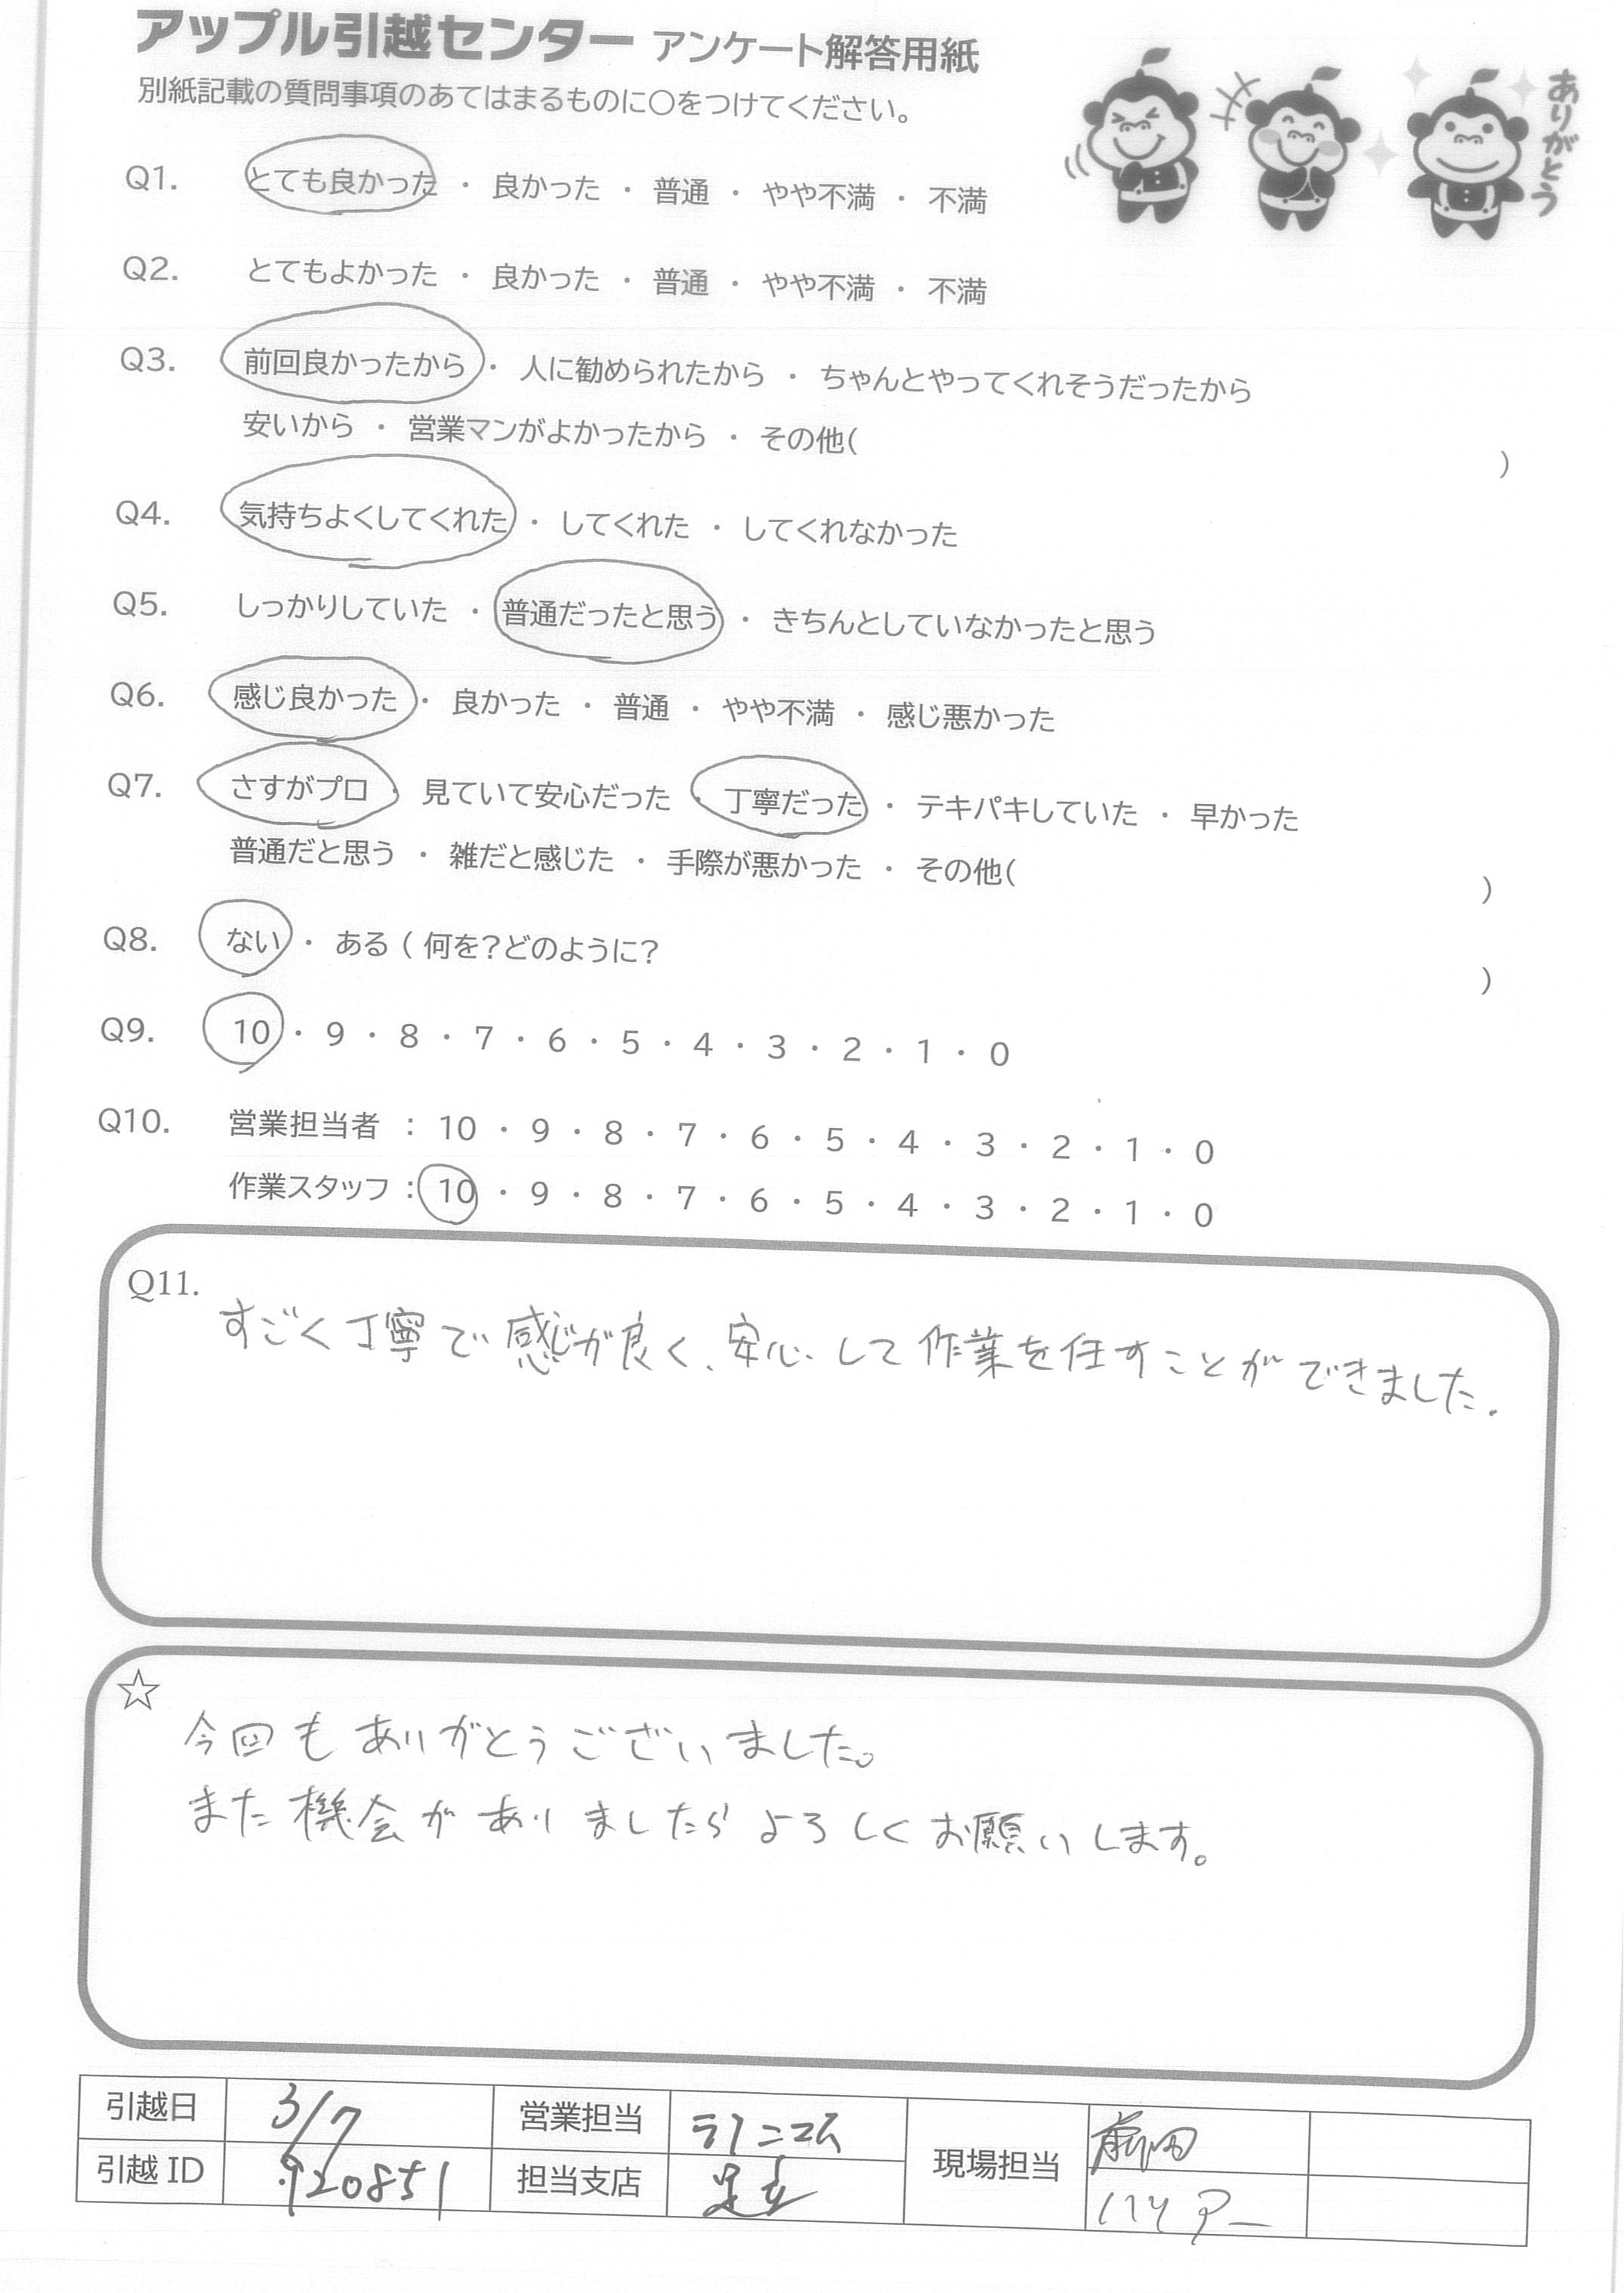 アップル引越センター アンケート解答用紙
別紙記載の質問事項のあてはまるものに○をつけてください。
ありがとう
Q1. とても良かった ・ 良かった ・ 普通 ・ やや不満 ・ 不満
Q2. とてもよかった ・ 良かった ・ 普通 ・ やや不満 ・ 不満
Q3. 前回良かったから ・ 人に勧められたから ・ ちゃんとやってくれそうだったから
安いから ・ 営業マンがよかったから ・ その他( )
Q4. 気持ちよくしてくれた ・ してくれた ・ してくれなかった
Q5. しっかりしていた ・ 普通だったと思う ・ きちんとしていなかったと思う
Q6. 感じ良かった ・ 良かった ・ 普通 ・ やや不満 ・ 感じ悪かった
Q7. さすがプロ ・ 見ていて安心だった ・ 丁寧だった ・ テキパキしていた ・ 早かった
普通だと思う ・ 雑だと感じた ・ 手際が悪かった ・ その他( )
Q8. ない ・ ある ( 何を?どのように? )
Q9. 10 ・ 9 ・ 8 ・ 7 ・ 6 ・ 5 ・ 4 ・ 3 ・ 2 ・ 1 ・ 0
Q10. 営業担当者 : 10 ・ 9 ・ 8 ・ 7 ・ 6 ・ 5 ・ 4 ・ 3 ・ 2 ・ 1 ・ 0
作業スタッフ : 10 ・ 9 ・ 8 ・ 7 ・ 6 ・ 5 ・ 4 ・ 3 ・ 2 ・ 1 ・ 0
Q11.
すごく丁寧で感じが良く、安心して作業を任すことができました.
☆
今回もありがとうございました。
また機会がありましたらよろしくお願いします。
引越日 3/7 営業担当 現場担当 前田
引越 ID 920851 担当支店 足立